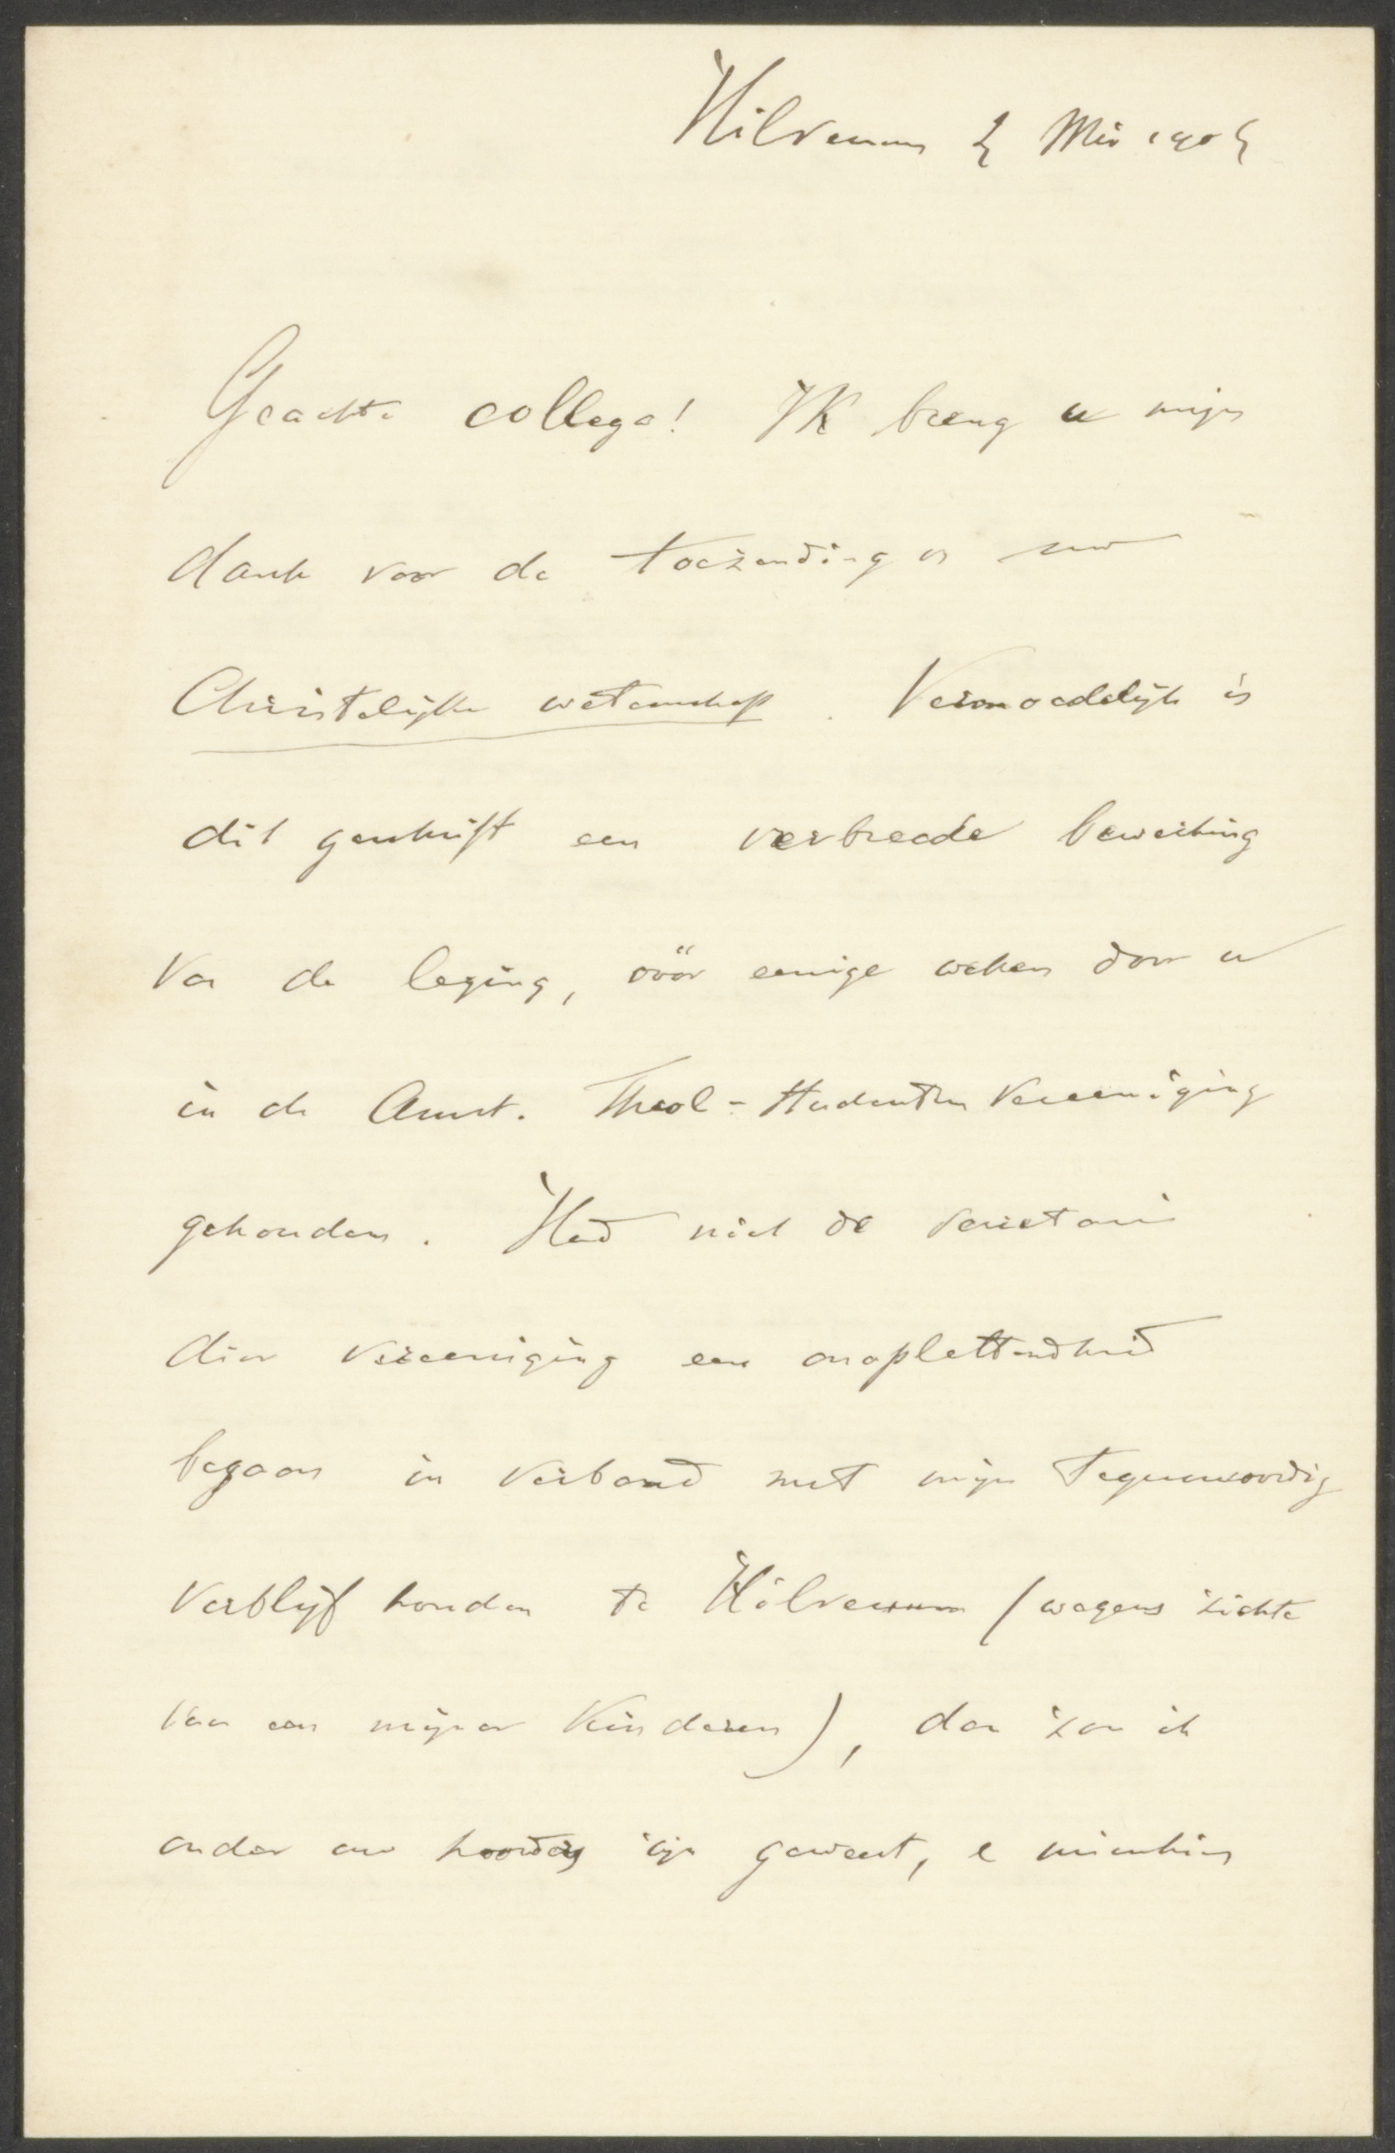 Hilversum 2 Mei 1904
Geachte collega! Ik breng u mijn
dank voor de toezending van uw
Christelijke wetenschap. Vermoedelijk is
dit geschrift een verbreede bewerking
van de lezing, vóór eenige weken door u
in de Amst. Theol-Studenten Vereeniging
gehouden. Had niet de secretaris
dier vereeniging een onoplettendheid
begaan in verband met mijn tegenwoordig
verblijf houden te Hilversum (wegens ziekte
van een mijner kinderen), dan zou ik
onder uw gehoor geweest, en misschien